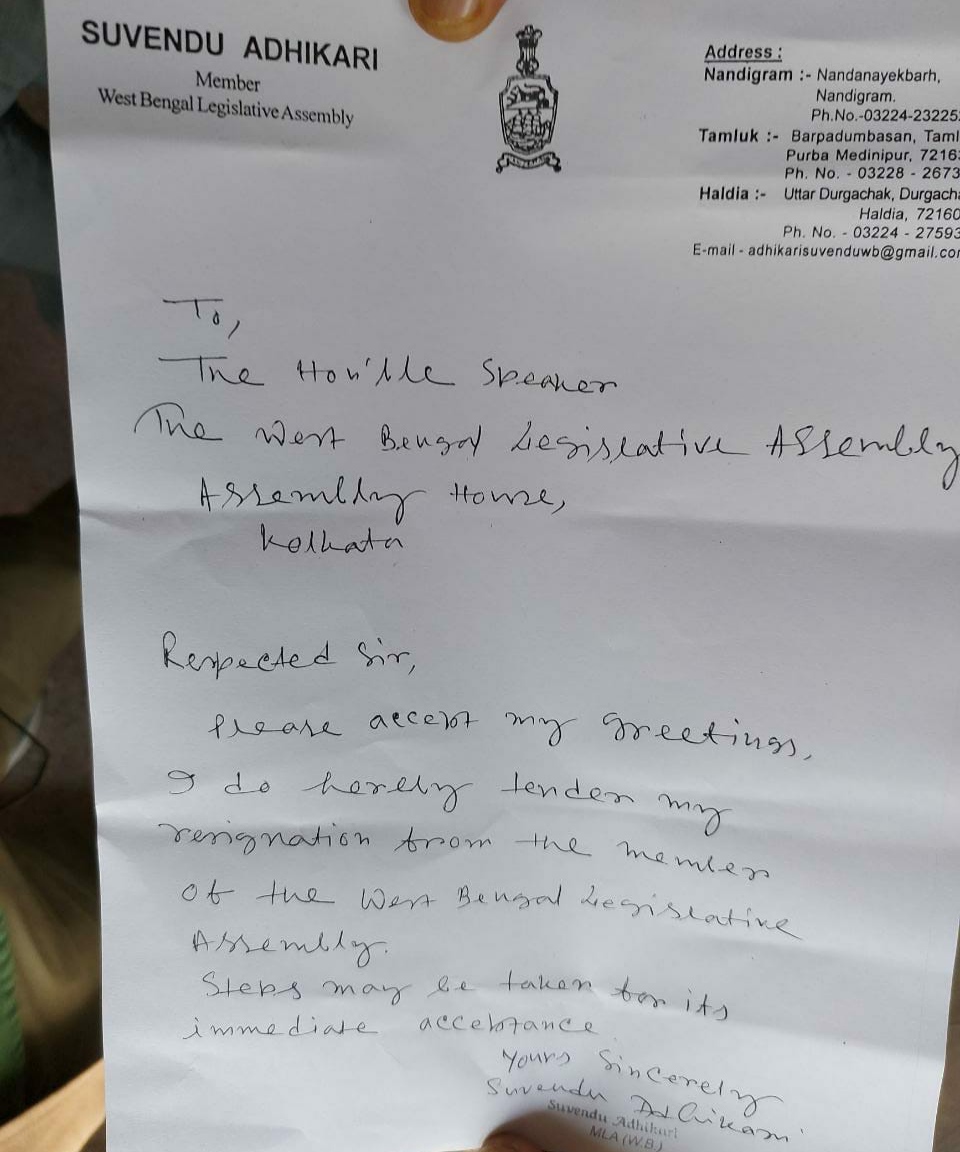 SUVENDU ADHIKARI
Member
West Bengal Legislative Assembly
Address :
Nandigram :- Nandanayekbarh,
Nandigram.
Ph.No.-03224-23225
Tamluk :- Barpadumbasan, Taml
Purba Medinipur, 7216
Ph. No. - 03228 - 2673
Haldia :- Uttar Durgachak, Durgach
Haldia, 72160
Ph. No. - 03224 - 27593
E-mail - adhikarisuvenduwb@gmail.co
To,
The Hon'ble Speaker
The West Bengal Legislative Assembly
Assembly House,
Kolkata
Respected Sir,
Please accept my greetings,
I do hereby tender my
resignation from the member
of the West Bengal Legislative
Assembly.
Steps may be taken for its
immediate acceptance
Yours Sincerely
Suvendu Adhikari
Suvendu Adhikari
MLA (W.B.)